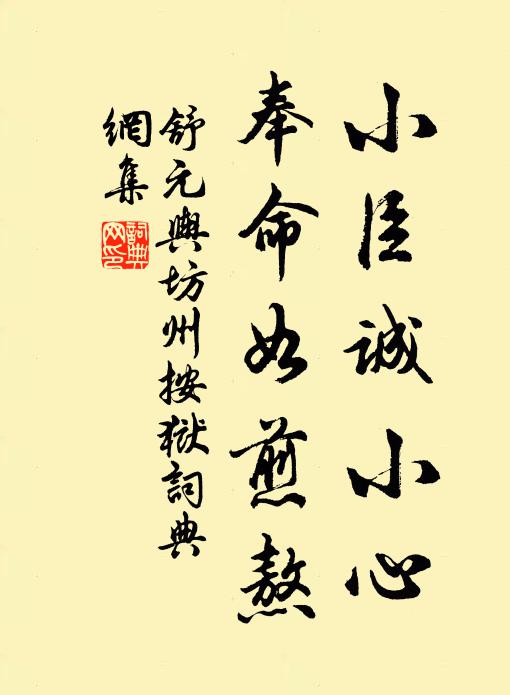 小臣誠小心
奉命如煎熬
舒元輿坊州按獄詞典
網集
詞典網印